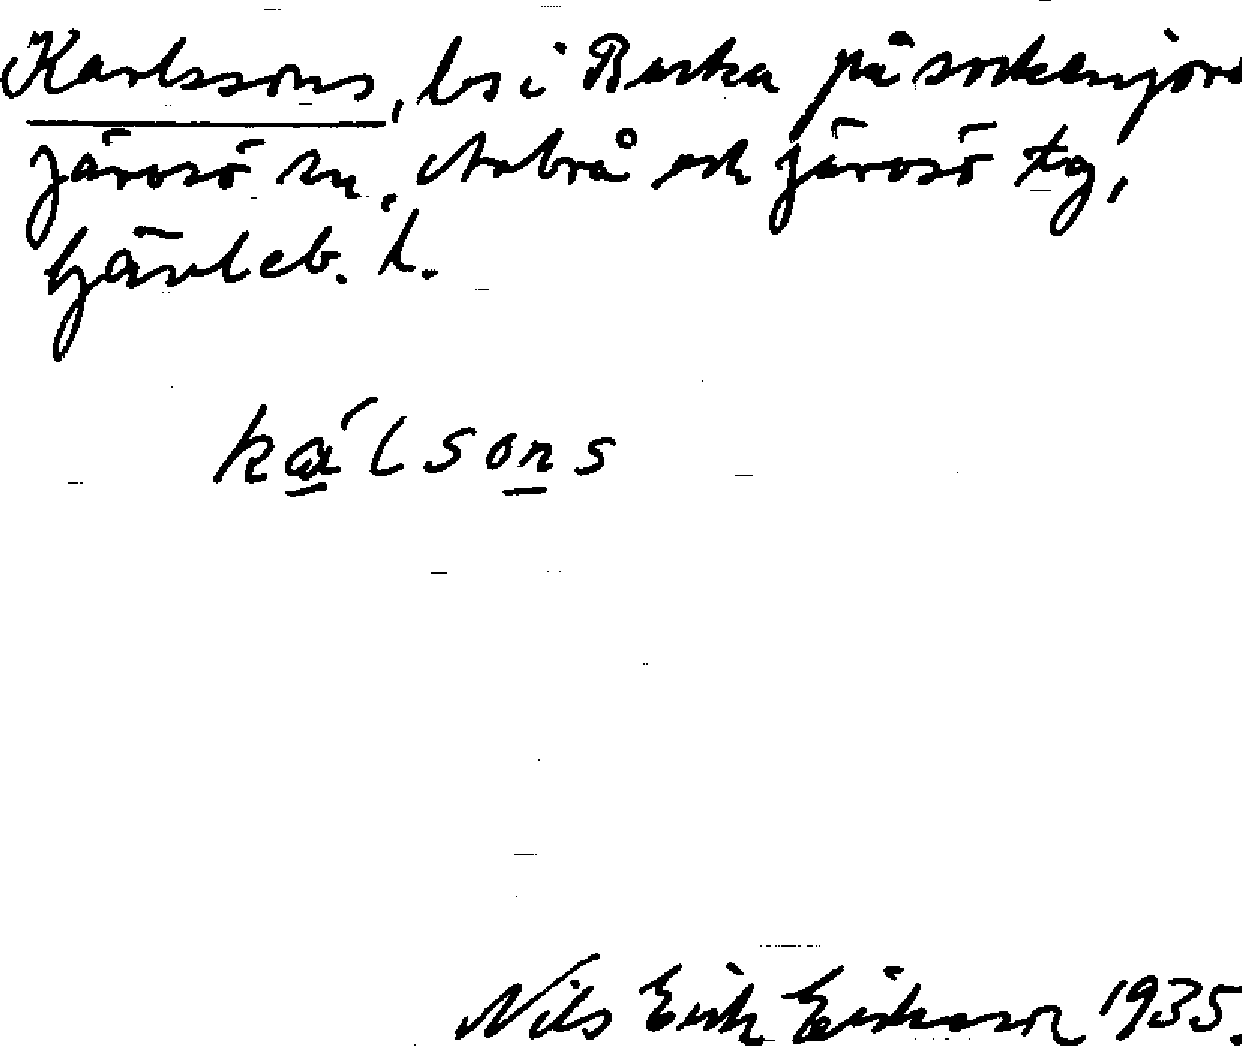 Karlssons, ls i Buska på sockenjord
Järvsö sn, Arbrå och Järvsö tg,
Gävleb. l.
kálsons
Nils Erik Eriksson 1935.